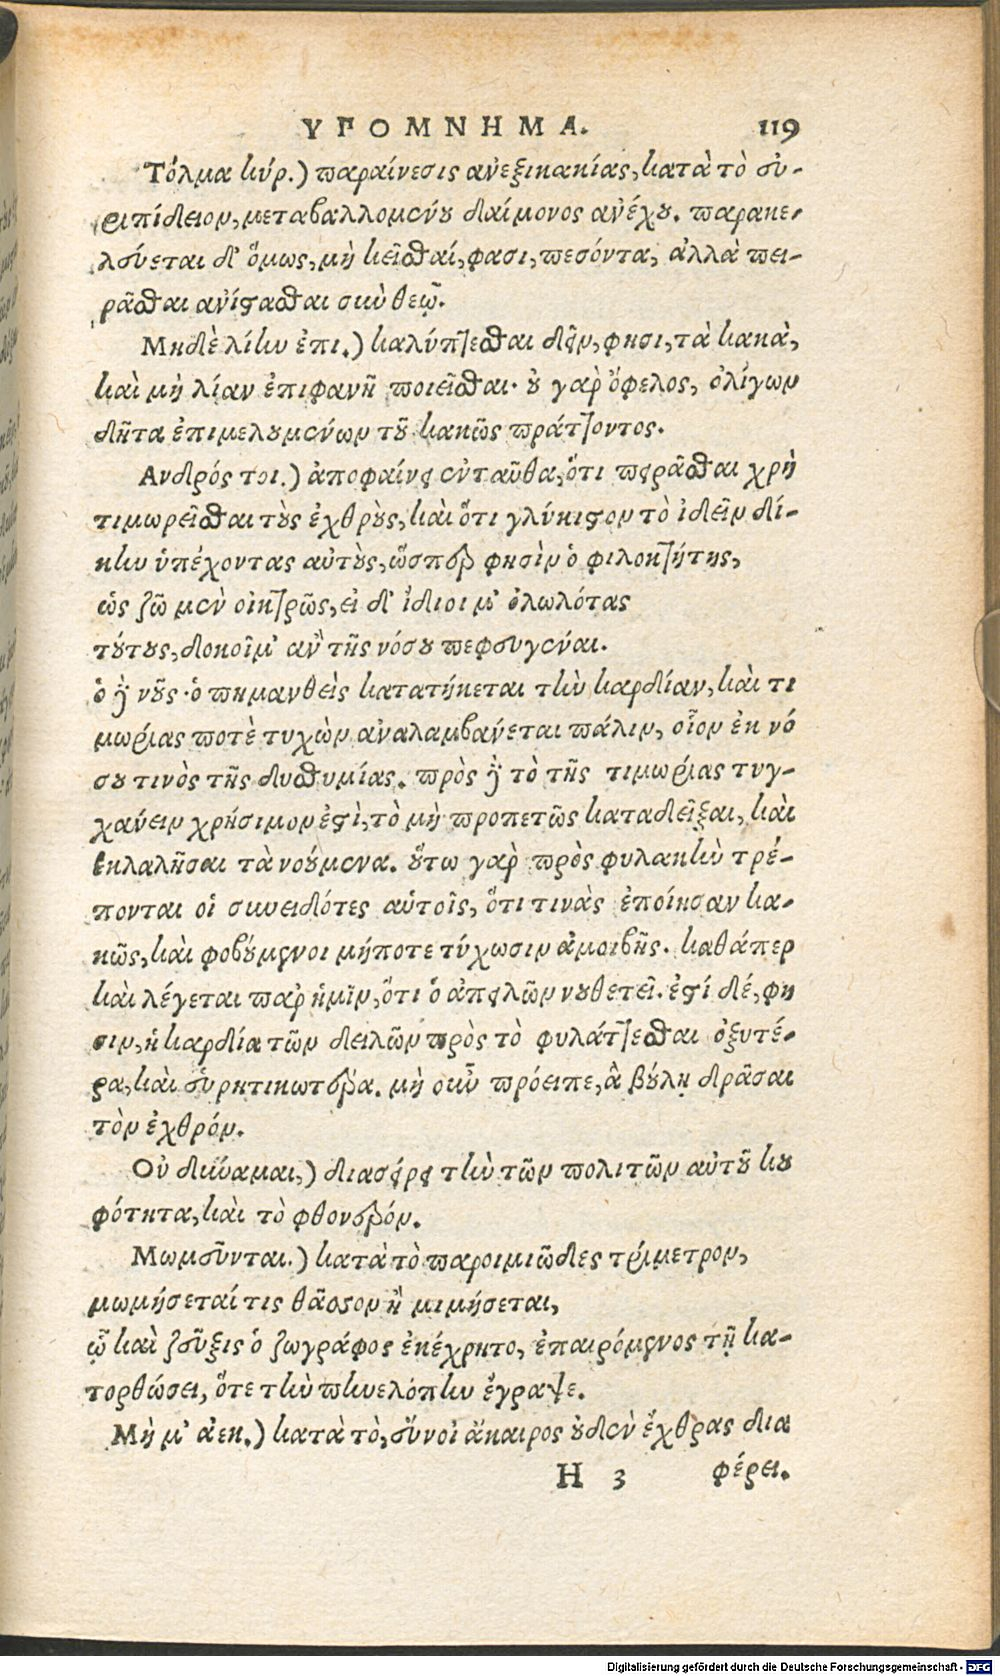 ΥΠΟΜΝΗΜΑ. 119
Τόλμα κύρ.) παραίνεσις ἀνεξικακίας, κατὰ τὸ εὐ-
ριπίδειον, μεταβαλλομένου δαίμονος ἀνέχου. παρακε-
λεύεται δ' ὅμως, μὴ κεῖσθαί, φασι, πεσόντα, ἀλλὰ πει-
ρᾶσθαι ἀνίστασθαι σὺν θεῷ.
Μηδὲ λίην ἐπι.) καλύπτεσθαι δεῖν, φησι, τὰ κακὰ,
καὶ μὴ λίαν ἐπιφανῆ ποιεῖσθαι· οὐ γὰρ ὄφελος, ὀλίγων
δῆτα ἐπιμελουμένων τοῦ κακῶς πράττοντος.
Ανδρός τοι.) ἀποφαίνει ἐνταῦθα, ὅτι πειρᾶσθαι χρὴ
τιμωρεῖσθαι τοὺς ἐχθροὺς, καὶ ὅτι γλύκιστον τὸ ἰδεῖν δί-
κην ὑπέχοντας αὐτοὺς, ὥσπερ φησὶν ὁ φιλοκτήτης,
ὡς ζῶ μὲν οἰκτρῶς, εἰ δ' ἴδιοι μ' ὀλωλότας
τούτους, δοκοῖμ' ἂν τῆς νόσου πεφευγέναι.
ὁ γὰρ νοῦς· ὁ πημανθεὶς κατατήκεται τὴν καρδίαν, καὶ τι
μωρίας ποτὲ τυχὼν ἀναλαμβάνεται πάλιν, οἷον ἐκ νό
σου τινὸς τῆς δυσθυμίας. πρὸς γὰρ τὸ τῆς τιμωρίας τυγ-
χάνειν χρήσιμον ἐστὶ, τὸ μὴ προπετῶς καταδεῖξαι, καὶ
ἐκλαλῆσαι τὰ νοούμενα. οὕτω γὰρ πρὸς φυλακὴν τρέ-
πονται οἱ συνειδότες αὑτοῖς, ὅτι τινὰς ἐποίησαν κα-
κῶς, καὶ φοβούμενοι μήποτε τύχωσιν ἀμοιβῆς. καθάπερ
καὶ λέγεται παρ' ἡμῖν, ὅτι ὁ ἀπειλῶν νουθετεῖ. ἐστί δέ, φη
σιν, ἡ καρδία τῶν δειλῶν πρὸς τὸ φυλάττεσθαι ὀξυτέ-
ρα, καὶ εὑρητικωτέρα. μὴ οὖν πρόειπε, ἃ βούλῃ δρᾶσαι
τὸν ἐχθρόν.
Οὐ δύναμαι,) διασύρει τὴν τῶν πολιτῶν αὐτοῦ κου
φότητα, καὶ τὸ φθονερόν.
Μωμεῦνται.) κατὰ τὸ παροιμιῶδες τρίμετρον,
μωμήσεταί τις θᾶσσον ἢ μιμήσεται,
ᾧ καὶ ζεῦξις ὁ ζωγράφος ἐκέχρητο, ἐπαιρόμενος τῇ κα-
τορθώσει, ὅτε τὴν πηνελόπην ἔγραψε.
Μὴ μ' ἀεκ.) κατὰ τὸ, εὔνοι ἄκαιρος οὐδὲν ἔχθρας δια
Η 3 φέρει.